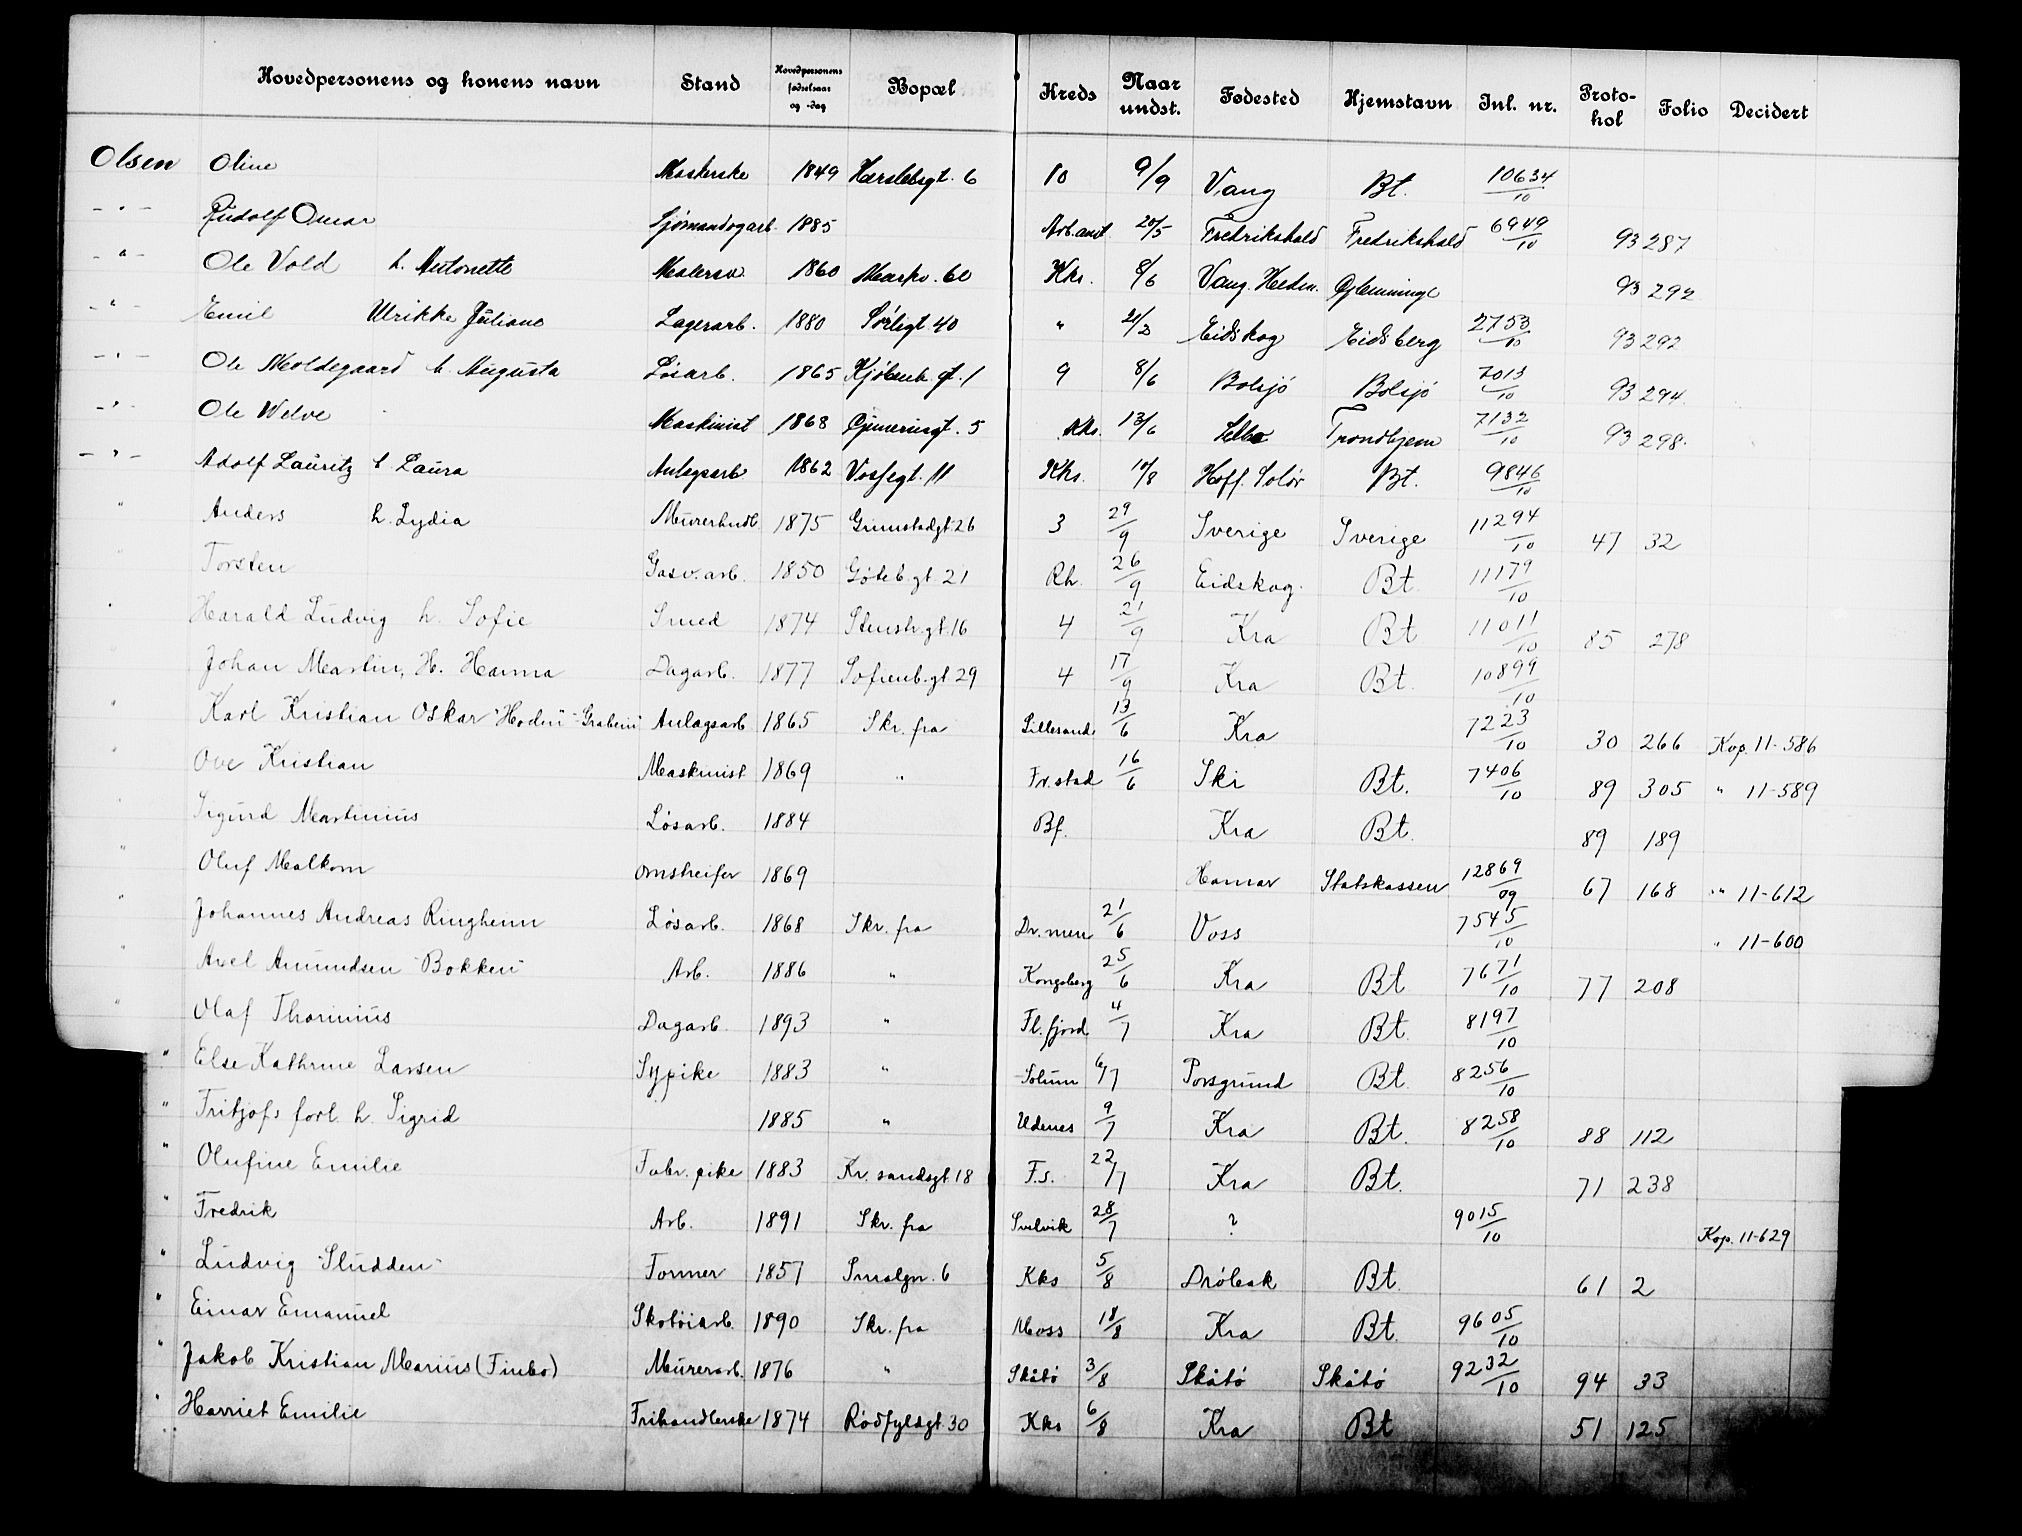 Hovedpersonens og konens navn Stand Hovedpersonens fødselsaar og -dag Bopæl Kreds Naar undst. Fødested Hjemstavn Inl. nr. Proto- kol Folio Decidert
Olsen Oline 1849 Herslebsgt. 6 10 9/9 Vang Bt. 10634/10
- " - Rudolf Omar Sjømandogarb. 1885 Arb.anst 20/5 Fredrikshald Fredrikshald 6949/10 93 287
- " - Ole Vold h. Antonette Malersv. 1860 Markv. 60 Kks. 8/6 Vang. Hedm. Glemminge 93 292
- " - Emil Ulrikke Juliane Lagerarb. 1880 Sørligt 40 " 21/3 Eidskog Eidsberg 2753/10 93 292
- " - Ole Moldegaard h. Augusta Løsarb. 1865 Kjøbenh.gt. 1 9 8/6 Bolsjø Bolsjø 7013/10 93 294.
- " - Ole Welve Maskinist 1868 5 Kks. 13/6 Selbo Trondhjem 7132/10 93 298.
- " - Adolf Lauritz h Laura Anlegsarb 1862 Vossegt. 11 Kks. 10/8 Hoff. Solør Bt. 9846/10
" Anders h. Lydia Murerhndl. 1875 Grimstadgt 26 3 29/9 Sverige Sverige 11294/10 47 32
" Torsten Gasv.arb. 1850 Göteb.gt. 21 Rh. 26/9 Eidskog. Bt. 11179/10
" Harald Ludvig h. Sofie Smed 1874 Stenstr.gt. 16 4 21/9 Kra Bt 11011/10 85 278
Johan Martin, H. Hanna Dagarb. 1877 Sofienb.gt 29 4 17/9 Kra Bt. 10899/10
" Karl Kristian Oskar "Hoden" - Graben" Anlagsarb 1865 Skr. fra Lillesand 13/6 Kra 7223/10 30 266 Kop. 11-586
" Ove Kristian Maskinist 1869 " Fr.stad 16/6 Ski Bt. 7406/10 89 305 " 11-589
Sigurd Martinius Løsarb. 1884 Bf. Kra Bt. 89 189
" Oluf Malkom omstreifer 1869 Hamar Statskassen 12869/09 67 168 " 11-612
" Johannes Andreas Ringheim Løsarb. 1868 Skr. fra Dr.men 21/6 Voss 7545/10 " 11-600
" Axel Amundsen "Bokken" Arb. 1886 " Kongsberg 25/6 Kra Bt 7671/10 77 208
" Olaf Thorinius Dagarb. 1893 " Fl.fjord 4/7 Kra Bt. 8197/10
" Else Kathrine Larsen Sypike 1883 " Solum 6/7 Porsgrund Bt. 8256/10
" Fritjofs forl. h. Sigrid 1885 " Udenes 9/7 Kra Bt. 8258/10 88 112
" Olufine Emilie Fabr. pike 1883 Kr. sandsgt. 18 F.s. 22/7 Kra Bt. 71 238
" Fredrik Arb. 1891 Skr. fra Svelvik 28/7 ? 9015/10 Kop. 11-629
" Ludvig "Sludden" Former 1857 Smalgn. 6 Kks 5/8 Drøbak Bt. 61 2
" Einar Emanuel Skotøiarb. 1890 Skr. fra Moss 18/8 Kra Bt. 9605/10
" Jakob Kristian Marius (Finbo) Murerarb. 1876 " Skåtø 3/8 Skåtø Skåtø 9232/10 94 33
" Harriet Emilie Frihandlerske 1874 Rødfyldsgt. 30 Kks 6/8 Kra Bt 51 125